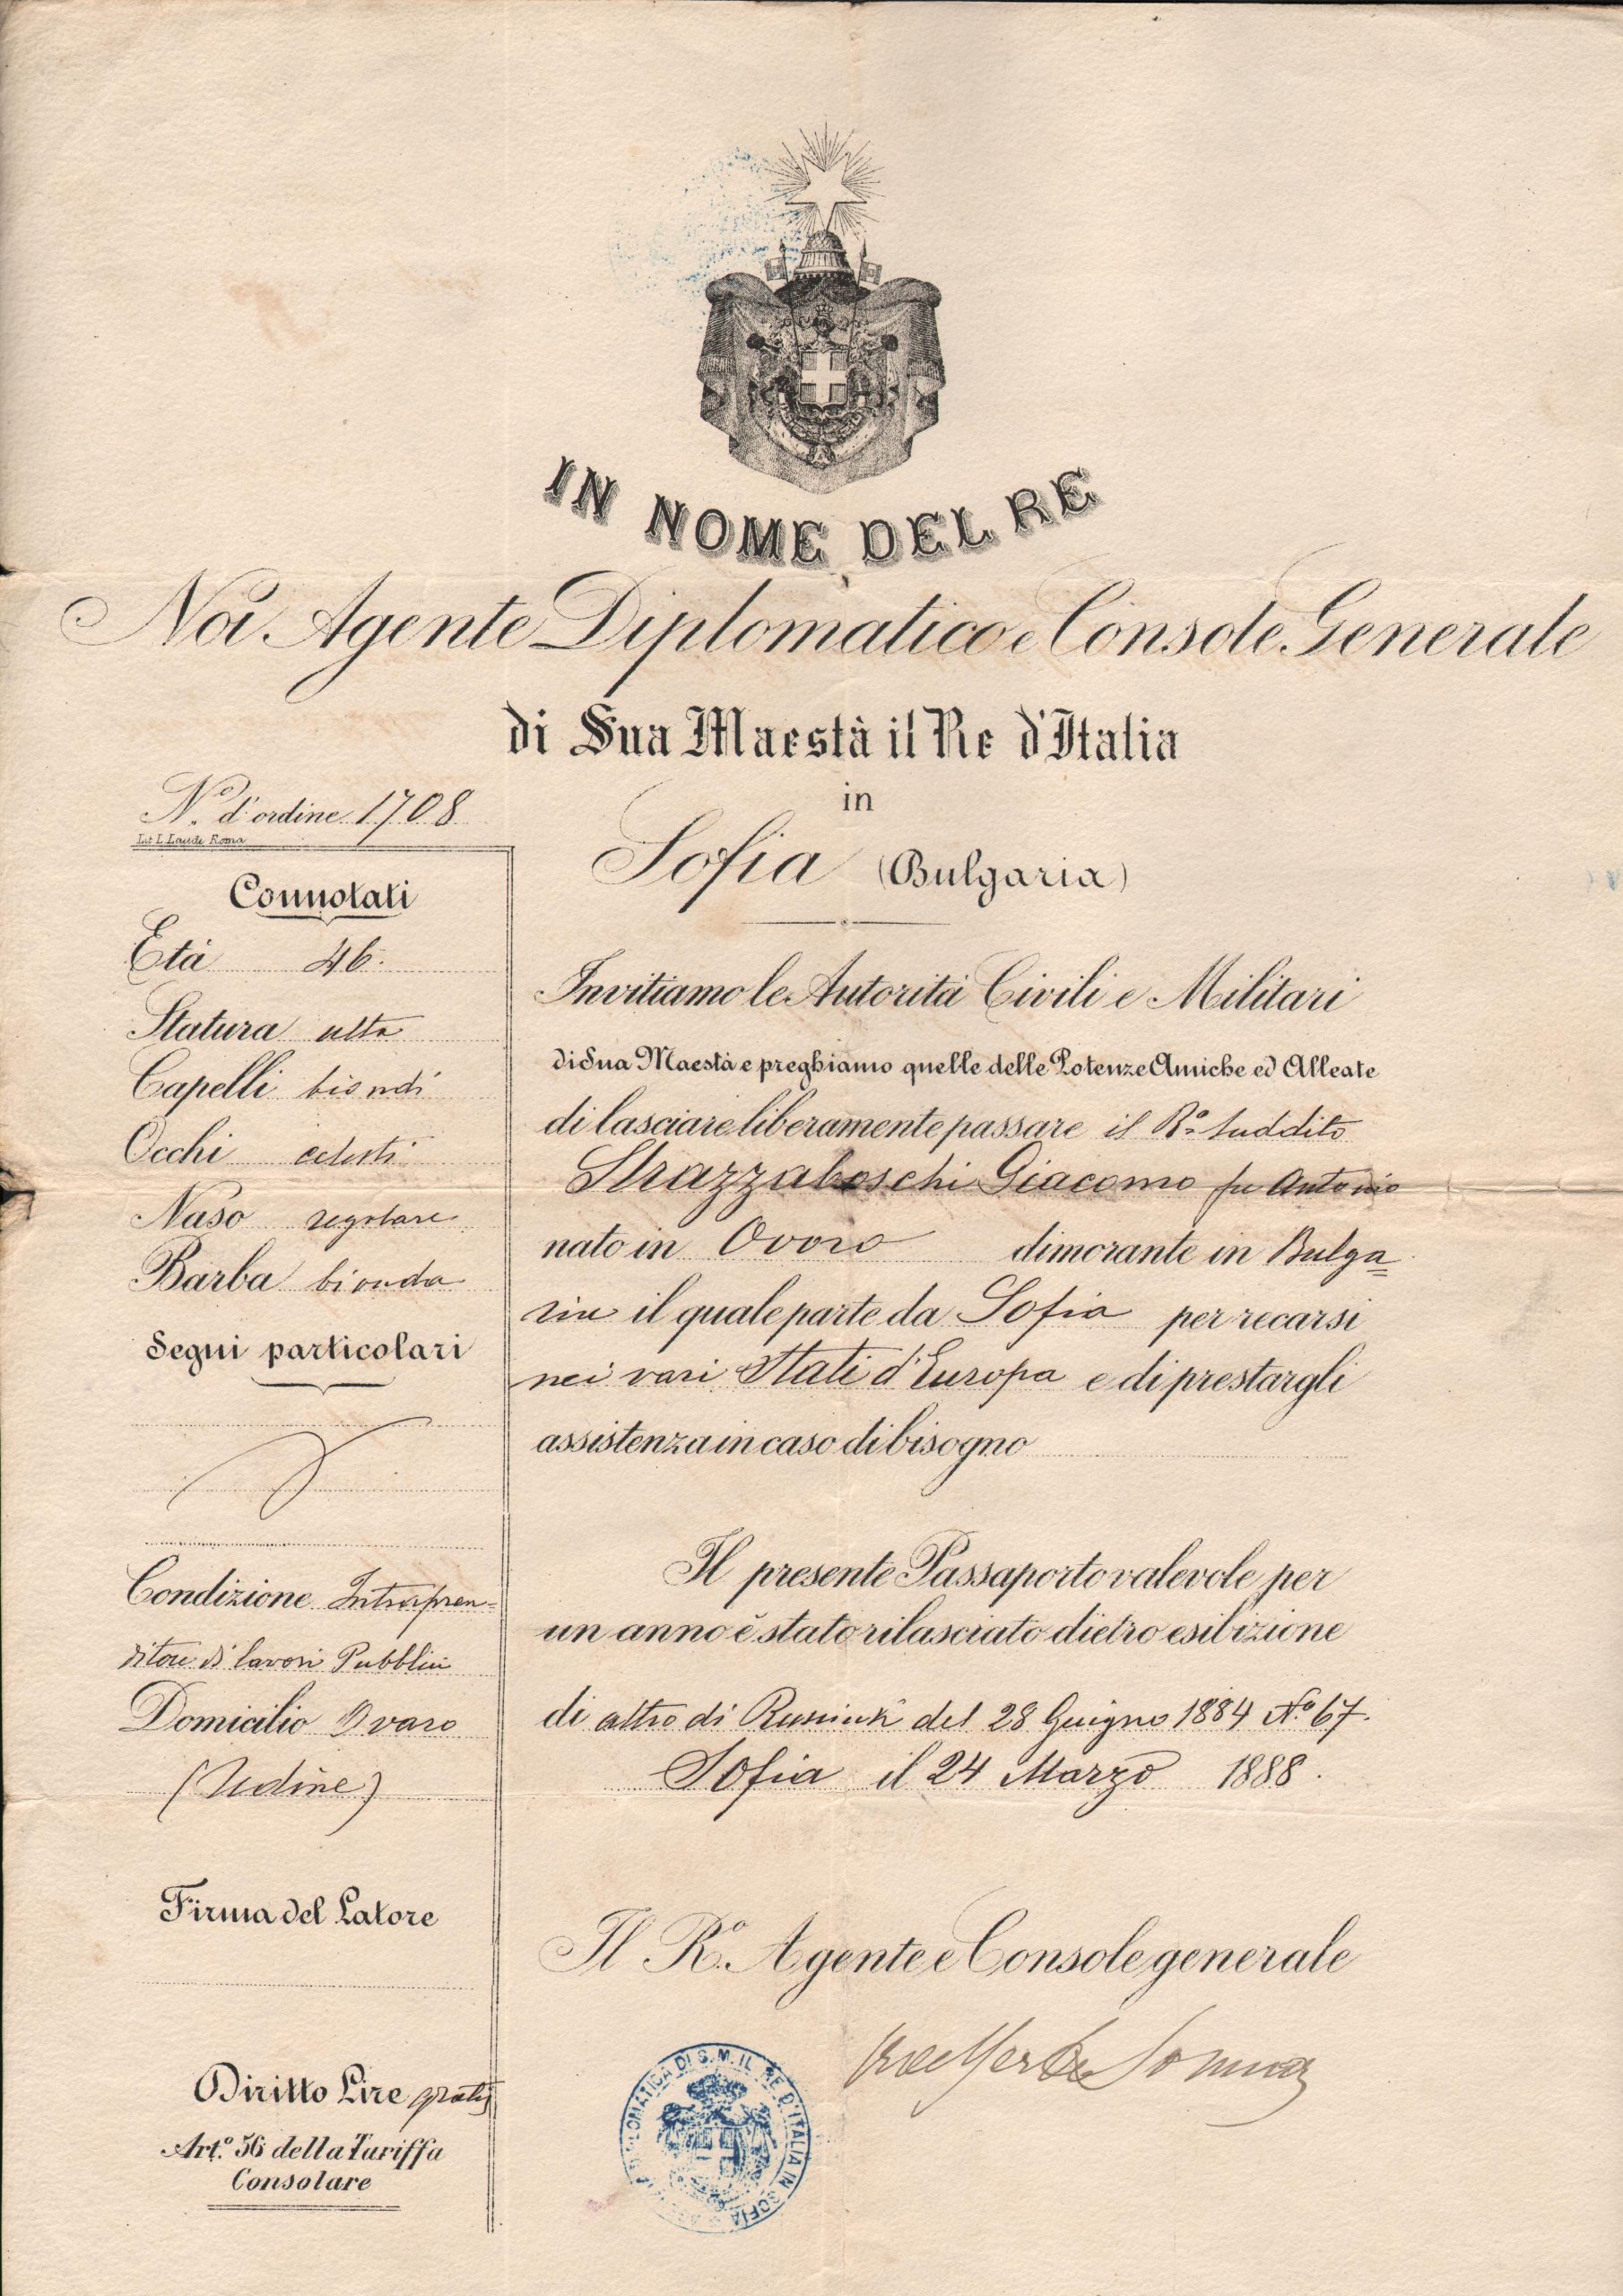 IN NOME DEL RE
Noi Agente Diplomatico e Console Generale
di Sua Maestà il Re d'Italia
in
Sofia (Bulgaria)
N.º d'ordine 1708
Lit. L. Laude Roma
Connotati
Età 46.
Statura alta
Capelli biondi
Occhi celesti
Naso regolare
Barba bionda
Segni particolari
Condizione Intrapren-
ditore di lavori Pubblici
Domicilio Ovaro
(Udine)
Firma del Latore
Diritto Lire gratis
Art.º 56 della Tariffa
Consolare
Invitiamo le Autorità Civili e Militari
di Sua Maestà e preghiamo quelle delle Potenze Amiche ed Alleate
di lasciare liberamente passare il R.º suddito
Strazzaboschi Giacomo fu Antonio
nato in Ovoro dimorante in Bulga=
ria il quale parte da Sofia per recarsi
nei vari Stati d'Europa e di prestargli
assistenza in caso di bisogno
Il presente Passaporto valevole per
un anno è stato rilasciato dietro esibizione
di altro di del 28 Guigno 1884 Nº 67.
Sofia il 24 Marzo 1888.
Il R.º Agente e Console generale
DI S.M. IL RE D'ITALIA IN SOFIA